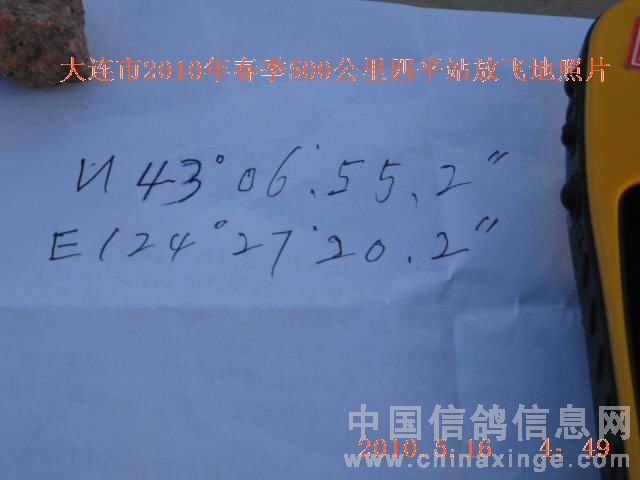 大连市2010年春季500公里四平站放飞地照片
N 43°06′.55.2″
E124°27′20.2″
中国信鸽信息网
2010.5.16 4:49
www.chinaxinge.com